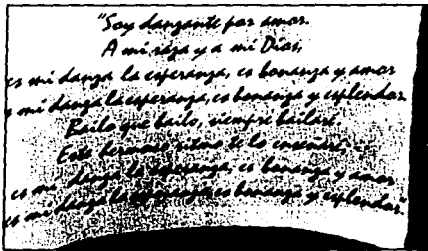 "Soy danzante por amor.
A mi raza y a mi Dios,
es mi danza la esperanza, es bonanza y amor
y mi danza la esperanza, es bonanza y esplendor.
Bailo que bailo, siempre bailaré.
Este hermoso ritmo te lo enseñaré.
es mi danza la esperanza, es bonanza y amor
es mi danza la esperanza es bonanza y esplendor."